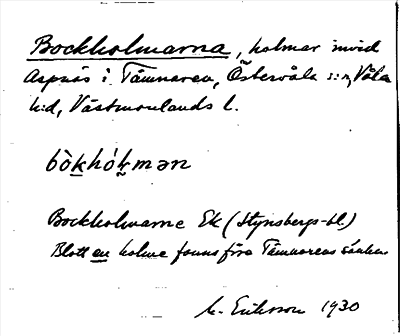 Bockholmarna, holmar invid
Aspnäs i Tämnaren, Östervåla s:n, Våla
h:d, Västmanlands l.
bòkhóḷmən
Bockholmarne Ek (Stynsbergs-bl.)
Blott en holme fanns före Tämnarens sänkn.
M. Eriksson 1930